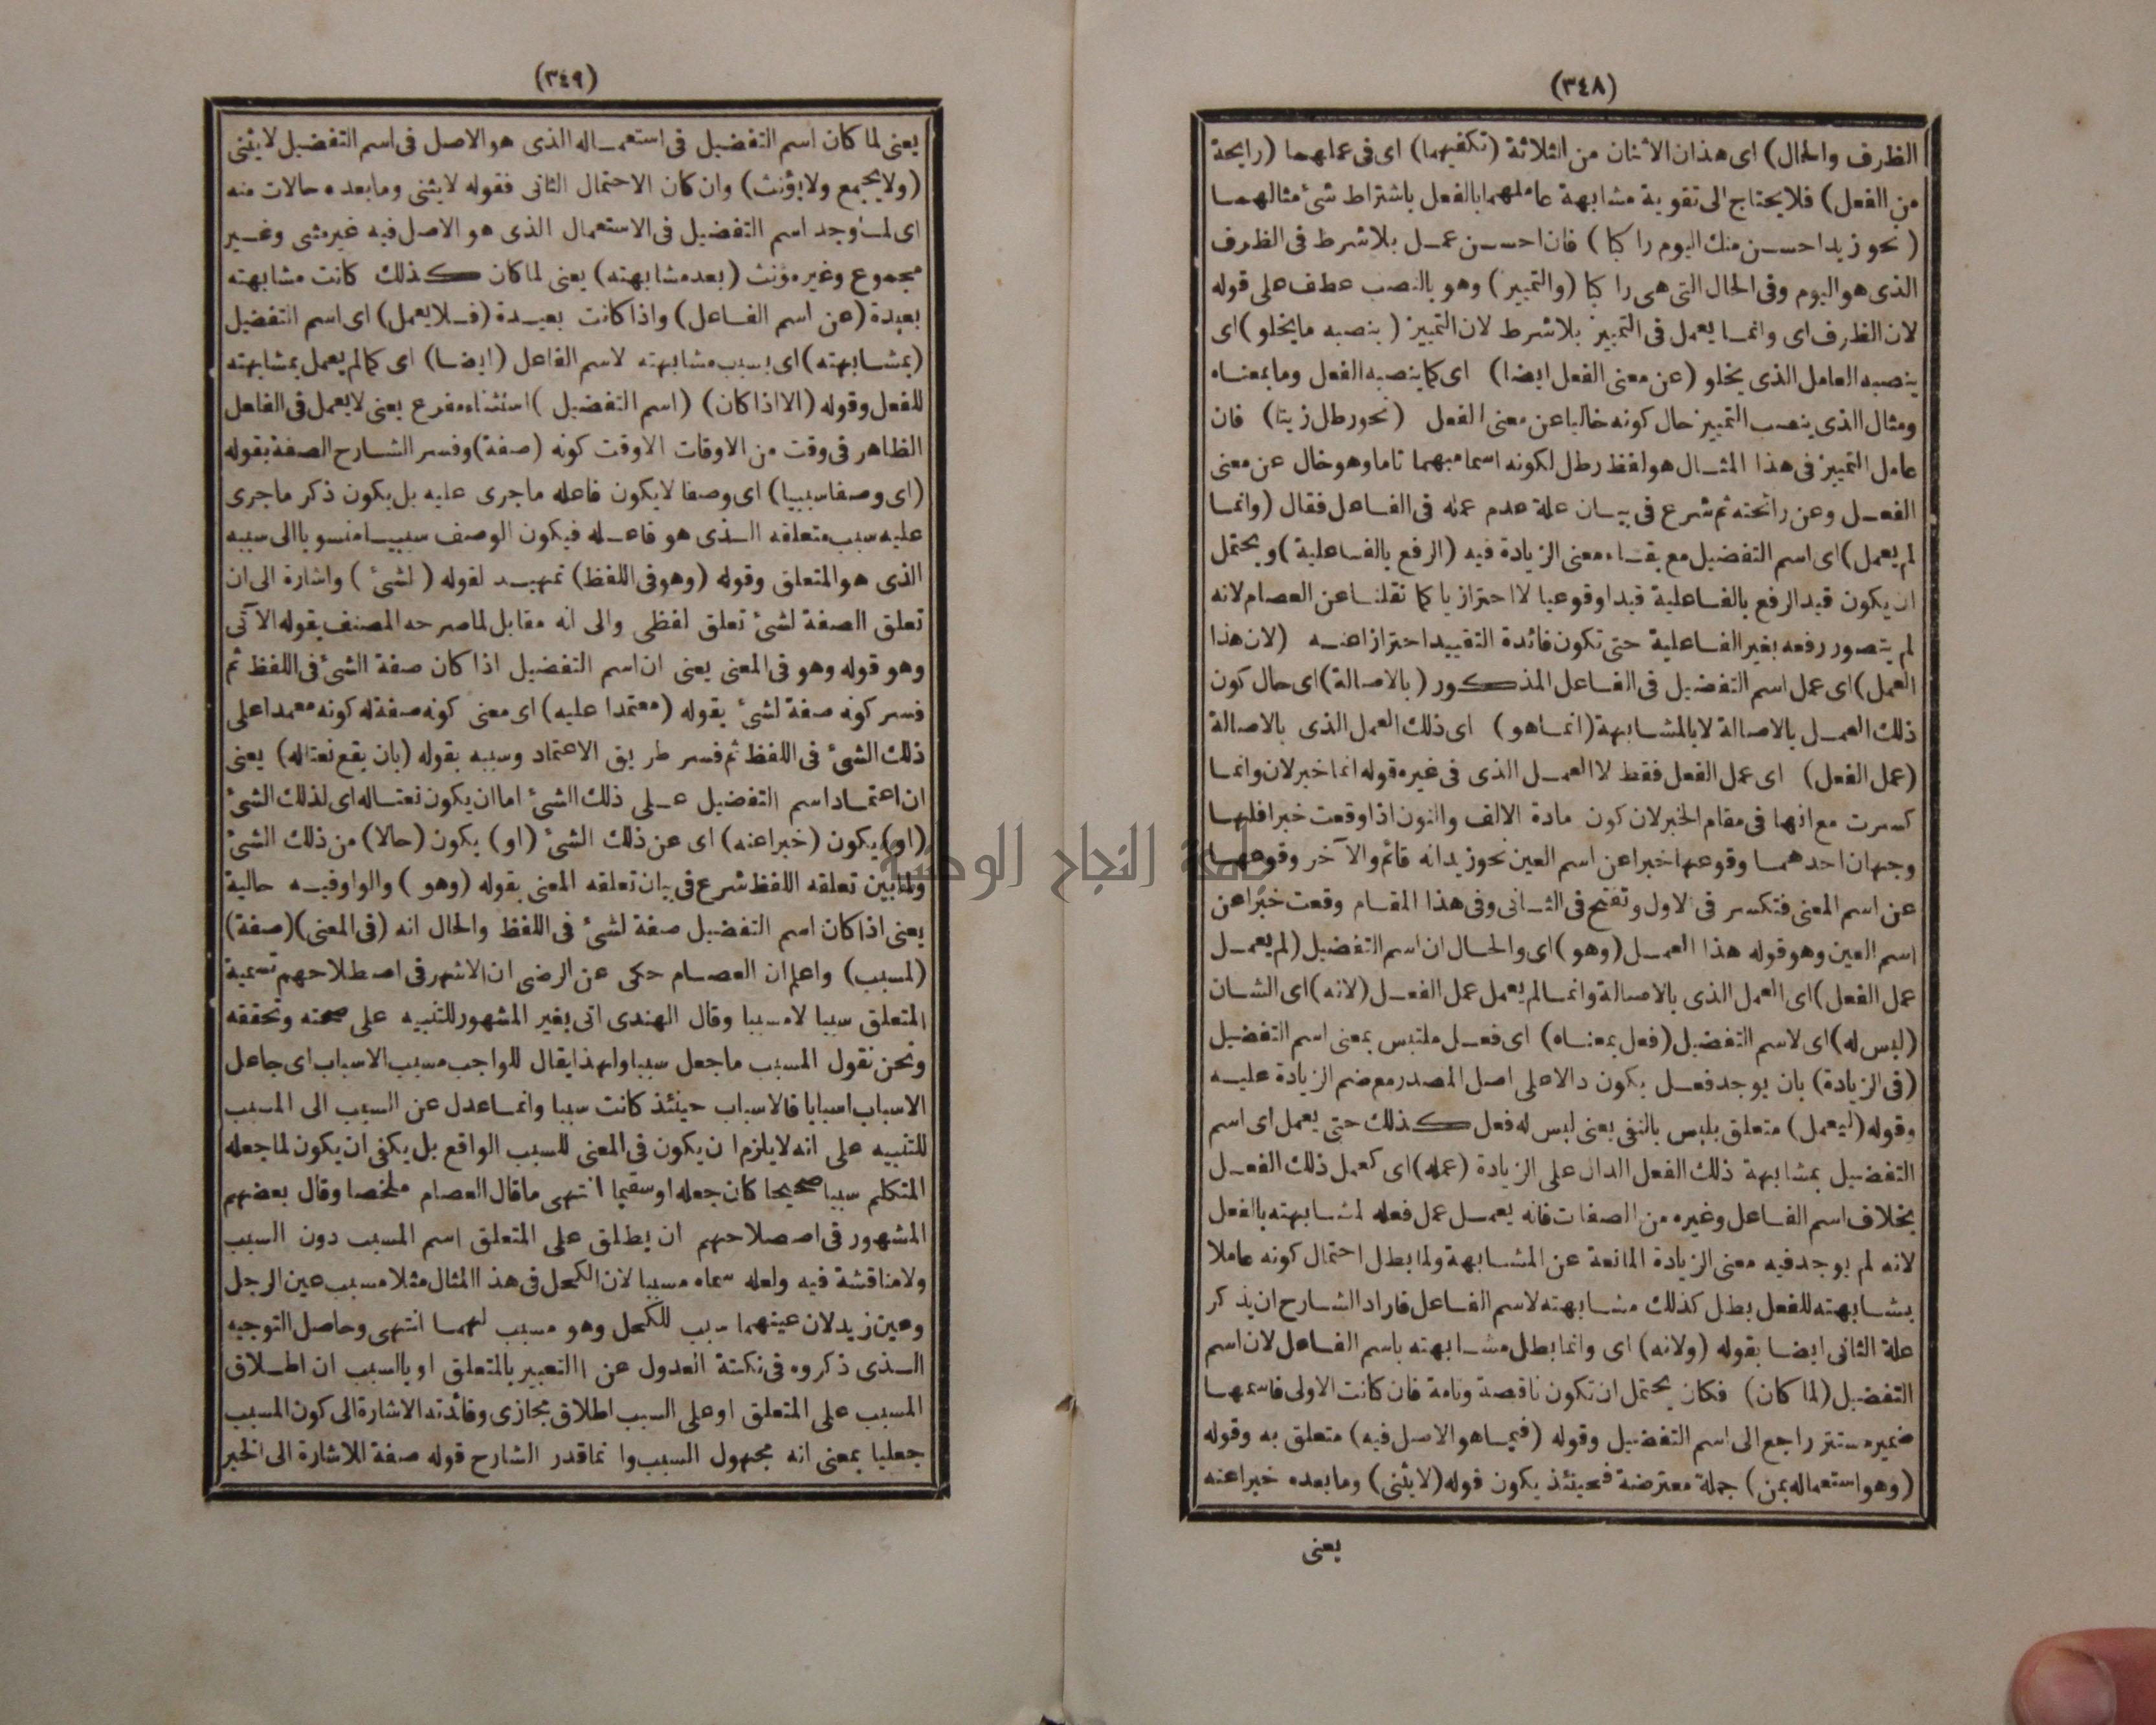 (٣٤٨)
الظرف والحال) اى هذان الاثنان من الثلاثة (تكفيهما) اى فى عملهما (رايحة
من الفعل) فلا يحتاج الى تقوية مشابهة عاملهما بالفعل باشتراط شئ مثالهما
(نحو زيد احسن منك اليوم راكبا) فان احسن عمل بلا شرط فى الظرف
الذى هو اليوم وفى الحال التى هى راكبا (والتمييز) وهو بالنصب عطف على قوله
لان الظرف اى وانما يعمل فى التمييز بلا شرط لان التمييز (ينصبه ما يخلو) اى
ينصبه العامل الذى يخلو (عن معنى الفعل ايضا) اى كما ينصبه الفعل وما بمعناه
ومثال الذى ينصب التمييز حال كونه خاليا عن معنى الفعل (نحو رطل زيتا) فان
عامل التمييز فى هذا المثال هو لفظ رطل لكونه اسما مبهما تاما وهو خال عن معنى
الفعل وعن رائحته ثم شرع فى بيان علة عدم عمله فى الفاعل فقال (وانما
لم يعمل) اى اسم التفضيل مع بقاء معنى الزيادة فيه (الرفع بالفاعلية) ويحتمل
ان يكون قيد الرفع بالفاعلية قيدا وقوعيا لا احترازيا كما نقلنا عن العصام لانه
لم يتصور رفعه بغير الفاعلية حتى تكون فائدة التقييد احترازا عنه (لان هذا
العمل) اى عمل اسم التفضيل فى الفاعل المذكور (بالاصالة) اى حال كون
ذلك العمل بالاصالة لا بالمشابهة (انما هو) اى ذلك العمل الذى بالاصالة
(عمل الفعل) اى عمل الفعل فقط لا العمل الذى فى غيره قوله انما خبر لان وانما
كسرت مع انها فى مقام الخبر لان كون مادة الالف والنون اذا وقعت خبرا فلها
وجهان احدهما وقوعها خبرا عن اسم العين نحو زيد انه قائم والآخر وقوعها
عن اسم المعنى فتكسر فى الاول وتفتح فى الثانى وفى هذا المقام وقعت خبرا عن
اسم العين وهو قوله هذا العمل (وهو) اى والحال ان اسم التفضيل (لم يعمل
عمل الفعل) اى العمل الذى بالاصالة وانما لم يعمل عمل الفعل (لانه) اى الشان
(ليس له) اى لاسم التفضيل (فعل بمعناه) اى فعل ملتبس بمعنى اسم التفضيل
(فى الزيادة) بان يوجد فعل يكون دالا على اصل المصدر مع ضم الزيادة عليه
وقوله (ليعمل) متعلق بليس بالنفى يعنى ليس له فعل كذلك حتى يعمل اى اسم
التفضيل بمشابهة ذلك الفعل الدال على الزيادة (عمله) اى كعمل ذلك الفعل
بخلاف اسم الفاعل وغيره من الصفات فانه يعمل عمل فعله لمشابهته بالفعل
لانه لم يوجد فيه معنى الزيادة المانعة عن المشابهة ولما بطل احتمال كونه عاملا
بمشابهته للفعل بطل كذلك مشابهته لاسم الفاعل فاراد الشارح ان يذكر
علة الثانى ايضا بقوله (ولانه) اى وانما بطل مشابهته باسم الفاعل لان اسم
التفضيل (لما كان) فكان يحتمل ان تكون ناقصة وتامة فان كانت الاولى فاسمها
ضمير مستتر راجع الى اسم التفضيل وقوله (فيما هو الاصل فيه) متعلق به وقوله
(وهو استعماله بمن) جملة معترضة فحينئذ يكون قوله (لا يثنى) وما بعده خبرا عنه
يعنى
(٣٤٩)
يعنى لما كان اسم التفضيل فى استعماله الذى هو الاصل فى اسم التفضيل لا يثنى
(ولا يجمع ولا يؤنث) وان كان الاحتمال الثانى فقوله لا يثنى وما بعده حالات منه
اى لما وجد اسم التفضيل فى الاستعمال الذى هو الاصل فيه غير مثنى وغير
مجموع وغير مؤنث (بعد مشابهته) يعنى لما كان كذلك كانت مشابهته
بعيدة (عن اسم الفاعل) واذا كانت بعيدة (فلا يعمل) اى اسم التفضيل
(بمشابهته) اى بسبب مشابهته لاسم الفاعل (ايضا) اى كما لم يعمل بمشابهته
للفعل وقوله (الا اذا كان) (اسم التفضيل) استثناء مفرغ يعنى لا يعمل فى الفاعل
الظاهر فى وقت من الاوقات الا وقت كونه (صفة) وفسر الشارح الصفة بقوله
(اى وصفا سببيا) اى وصفا لا يكون فاعله ما جرى عليه بل يكون ذكر ما جرى
عليه سبب متعلقه الذى هو فاعله فيكون الوصف سببيا منسوبا الى سببه
الذى هو المتعلق وقوله (وهو فى اللفظ) تمهيد لقوله (لشئ) واشارة الى ان
تعلق الصفة لشئ تعلق لفظى والى انه مقابل لما صرحه المصنف بقوله الآتى
وهو قوله وهو فى المعنى يعنى ان اسم التفضيل اذا كان صفة الشئ فى اللفظ ثم
فسر كونه صفة لشئ بقوله (معتمدا عليه) اى معنى كونه صفة له كونه معتمدا على
ذلك الشئ فى اللفظ ثم فسر طريق الاعتماد وسببه بقوله (بان يقع نعتا له) يعنى
ان اعتماد اسم التفضيل على ذلك الشئ اما ان يكون نعتا له اى لذلك الشئ
(او) يكون (خبرا عنه) اى عن ذلك الشئ (او) يكون (حالا) من ذلك الشئ
ولما بين تعلقه اللفظ شرع فى بيان تعلقه المعنى بقوله (وهو) والواو فيه حالية
يعنى اذا كان اسم التفضيل صفة لشئ فى اللفظ والحال انه (فى المعنى) (صفة)
(لمسبب) واعلم ان العصام حكى عن الرضى ان الاشهر فى اصطلاحهم تسمية
المتعلق سببا لا مسببا وقال الهندى اتى بغير المشهور للتنبيه على صحته وتحققه
ونحن نقول المسبب ما جعل سببا ولهذا يقال للواجب مسبب الاسباب اى جاعل
الاسباب اسبابا فالاسباب حينئذ كانت سببا وانما عدل عن السبب الى المسبب
للتنبيه على انه لا يلزم ان يكون فى المعنى للسبب الواقع بل يكفى ان يكون لما جعله
المتكلم سببا صحيحا كان جعله او سقيما انتهى ما قال العصام ملخصا وقال بعضهم
المشهور فى اصصلاحهم ان يطلق على المتعلق اسم المسبب دون السبب
ولا مناقشة فيه ولعله سماه مسببا لان الكحل فى هذا المثال مثلا مسبب عين الرجل
وعين زيد لان عينهما سبب للكحل وهو مسبب لهما انتهى وحاصل التوجيه
الذى ذكروه فى نكتة العدول عن التعبير بالمتعلق او بالسبب ان اطلاق
المسبب على المتعلق او على السبب اطلاق مجازى وفائدته الاشارة الى كون المسبب
جعليا بمعنى انه مجهول السبب وانما قدر الشارح قوله صفة للاشارة الى الخبر
جامعة النجاح الوطنية